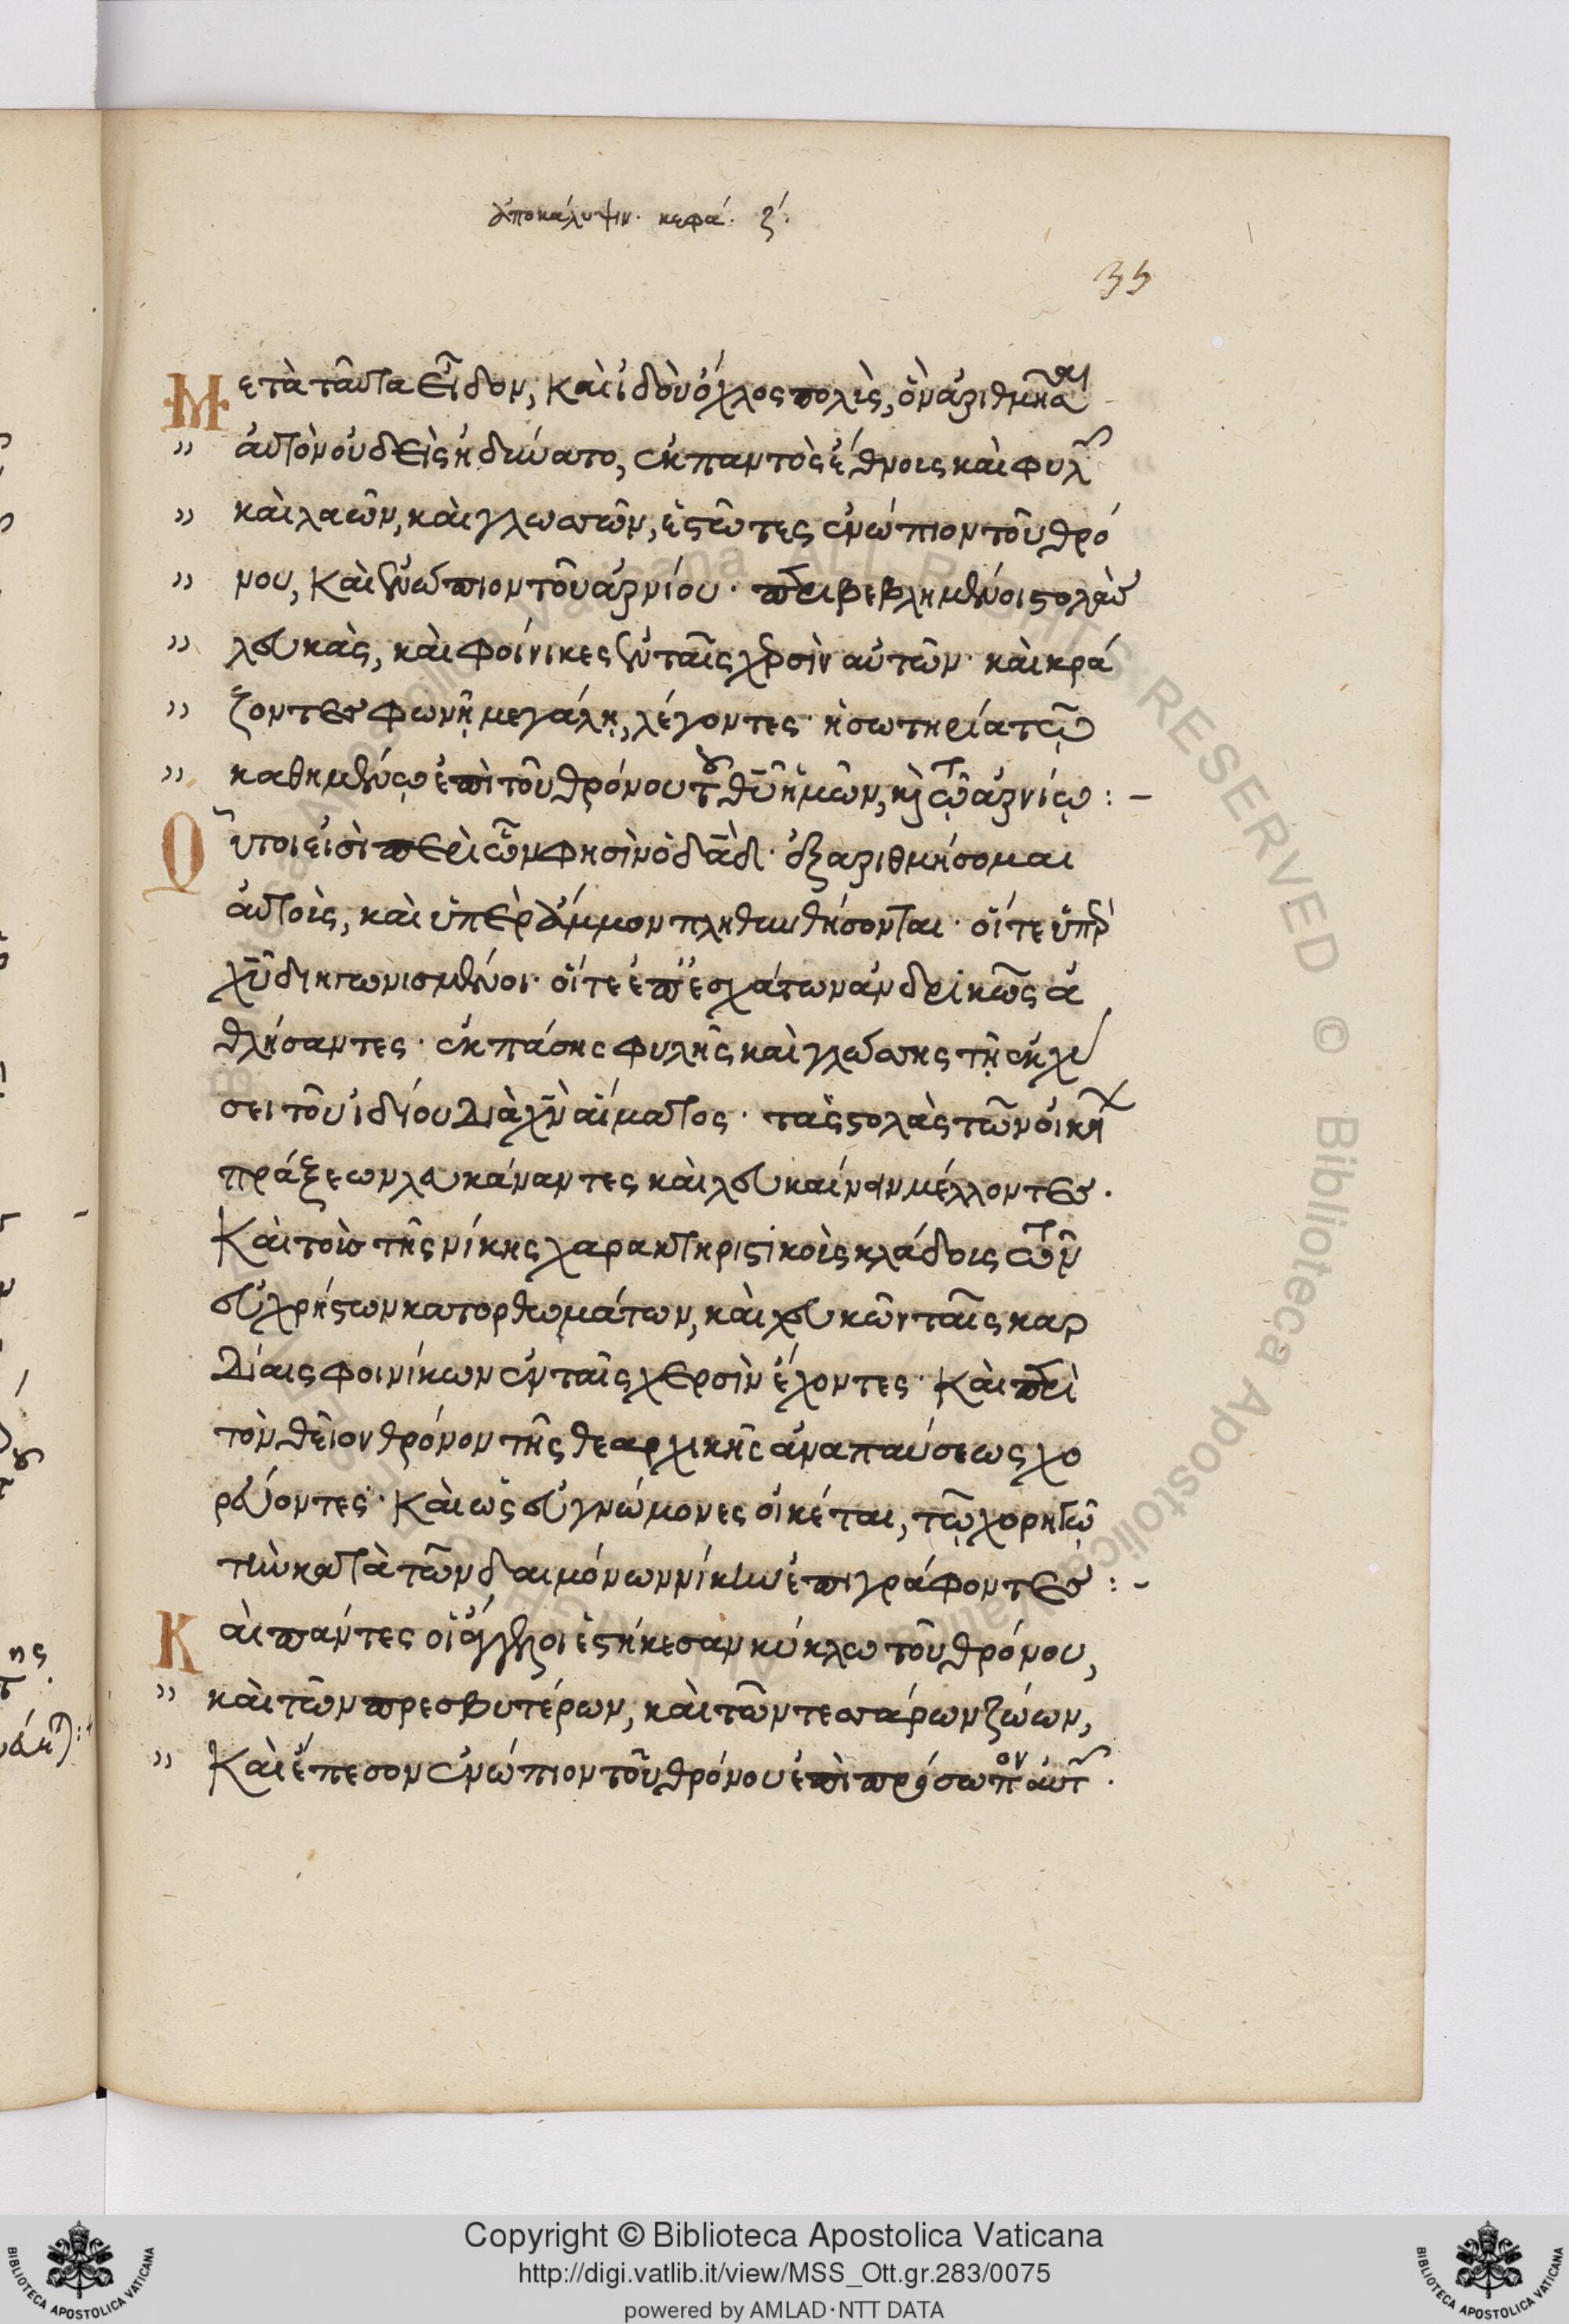 ἀποκάλυψιν. κεφά. ζ.
35
Μετὰ ταῦτα εἶδον, καὶ ἰδοὺ ὄχλος πολὺς, ὃν ἀριθμῆσαι
" αὐτὸν οὐδεὶς ἠδύνατο, ἐκ παντὸς ἔθνους καὶ φυλῶν
" καὶ λαῶν, καὶ γλωσσῶν, ἑστῶτες ἐνώπιον τοῦ θρό
" νου, καὶ ἐνώπιον τοῦ ἀρνίου. περιβεβλημένοι στολὰς
" λευκὰς, καὶ φοίνικες ἐν ταῖς χερσὶν αὐτῶν. καὶ κρά
" ζοντες φωνῇ μεγάλῃ, λέγοντες. ἡ σωτηρία τῷ
" καθημένῳ ἐπὶ τοῦ θρόνου τοῦ θῡ ἡμῶν, κὶ τῷ ἀρνίῳ : –
Οὗτοι εἰσὶ περὶ ὧν φησὶν ὁ δᾱδ. ἐξαριθμήσομαι
αὐτοὺς, καὶ ὑπὲρ ἄμμον πληθυνθήσονται. οἵ τε ὑπὲρ
χῡ διηγωνισμένοι. οἵ τε ἐπ' ἐσχάτων ἀνδρικῶς ἀ
θλήσαντες. ἐκ πάσης φυλῆς καὶ γλώσσης τῇ ἐκχύ
σει τοῦ ἰδίου διὰ χν̄ αἵματος. τὰς στολὰς τῶν οἰκείων
πράξεων λευκάναντες καὶ λευκαίνειν μέλλοντες.
Καὶ τοὺς τῆς νίκης χαρακτηριστικοὺς κλάδους τῶν
εὐχρήστων κατορθωμάτων, καὶ λευκῶν ταῖς καρ
δίαις φοινίκων ἐν ταῖς χερσὶν ἔχοντες. Καὶ περὶ
τὸν θεῖον θρόνον τῆς θεαρχικῆς ἀναπαύσεως χο
ρεύοντες. Καὶ ὡς εὐγνώμονες οἰκέται, τῷ χορηγῷ
τὴν κατὰ τῶν δαιμόνων νίκην ἐπιγράφοντες : –
Καὶ πάντες οἱ ἄγγελοι ἑστήκεσαν κύκλω τοῦ θρόνου,
" καὶ τῶν πρεσβυτέρων, καὶ τῶν τεσσάρων ζώων,
" Καὶ ἔπεσον ἐνώπιον τοῦ θρόνου ἐπὶ πρόσωπον αὐτῶν.
Copyright © Biblioteca Apostolica Vaticana
http://digi.vatlib.it/view/MSS_Ott.gr.283/0075
powered by AMLAD·NTT DATA